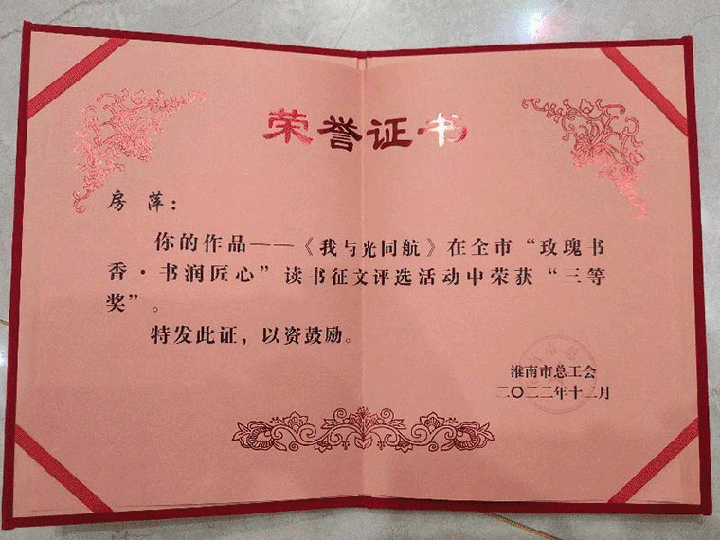 荣誉证书
房 萍：
你的作品——《我与光同航》在全市“玫瑰书
香·书润匠心”读书征文评选活动中荣获“三等
奖”。
特发此证，以资鼓励。
淮南市总工会
二〇二二年十二月